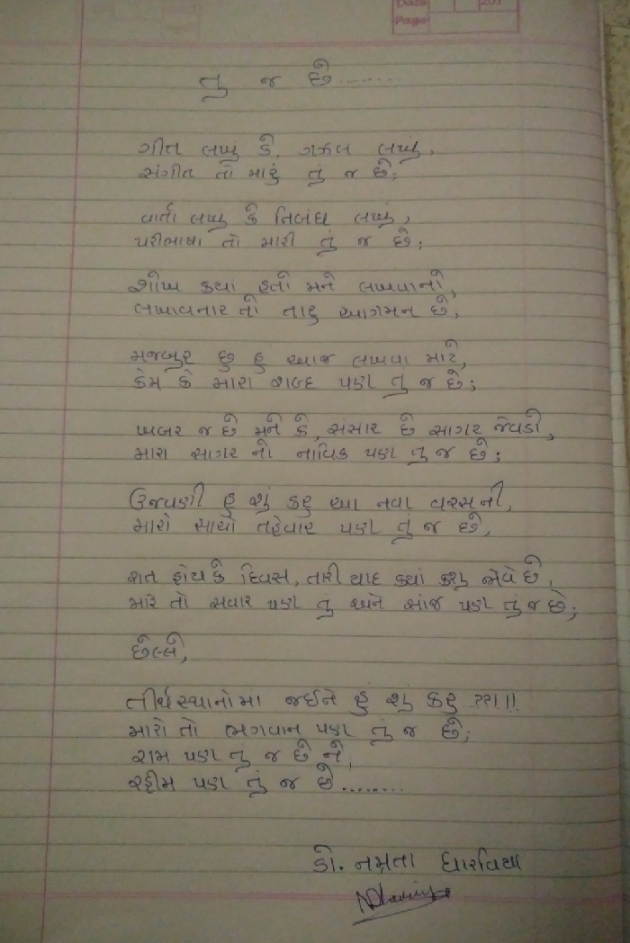 Date 201
Page
તુ જ છે.......
ગીત લખુ કે, ગઝલ લખુ,
સંગીત તો મારૂં તું જ છે;
વાર્તા લખુ કે નિબંધ લખું,
પરીભાષા તો મારી તું જ છે;
શોખ કયા હતો મને લખવાનો,
લખાવનાર તો તારુ આગમન છે,
મજબુર છુ હુ આજ લખવા માટે,
કેમ કે મારા શબ્દ પણ તું જ છે;
ખબર જ છે મને કે, સંસાર છે સાગર જેવડો,
મારા સાગર નો નાવિક પણ તુ જ છે;
ઉજવણી હુ શું કરુ આ નવા વરસ ની,
મારો સાચો તહેવાર પણ તું જ છે,
રાત હોય કે દિવસ, તારી યાદ ક્યાં કશુ જોવે છે,
મારે તો સવાર પણ તુ અને સાંજ પણ તું જ છે;
છેલ્લે,
તીર્થ સ્થાનોમા જઈને હું શું કરુ ??!!!
મારો તો ભગવાન પણ તું જ છે;
રામ પણ તુ જ છે ને,
રહીમ પણ તું જ છે........
ડો. નમ્રતા ધારવિયા